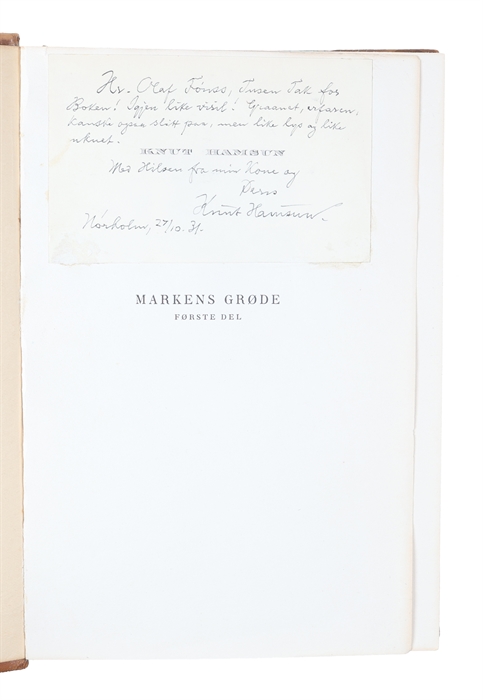 Hr. Olaf Fönss, Tusen Tak for
Boken! Igjen like viril! Graanet, erfaren,
kanske ogsaa slitt paa, men like lys og like
ukuet.
KNUT HAMSUN
Med Hilsen fra min Kone og
Deres
Knut Hamsun.
Nörholm, 27/10. 31.
MARKENS GRØDE
FØRSTE DEL